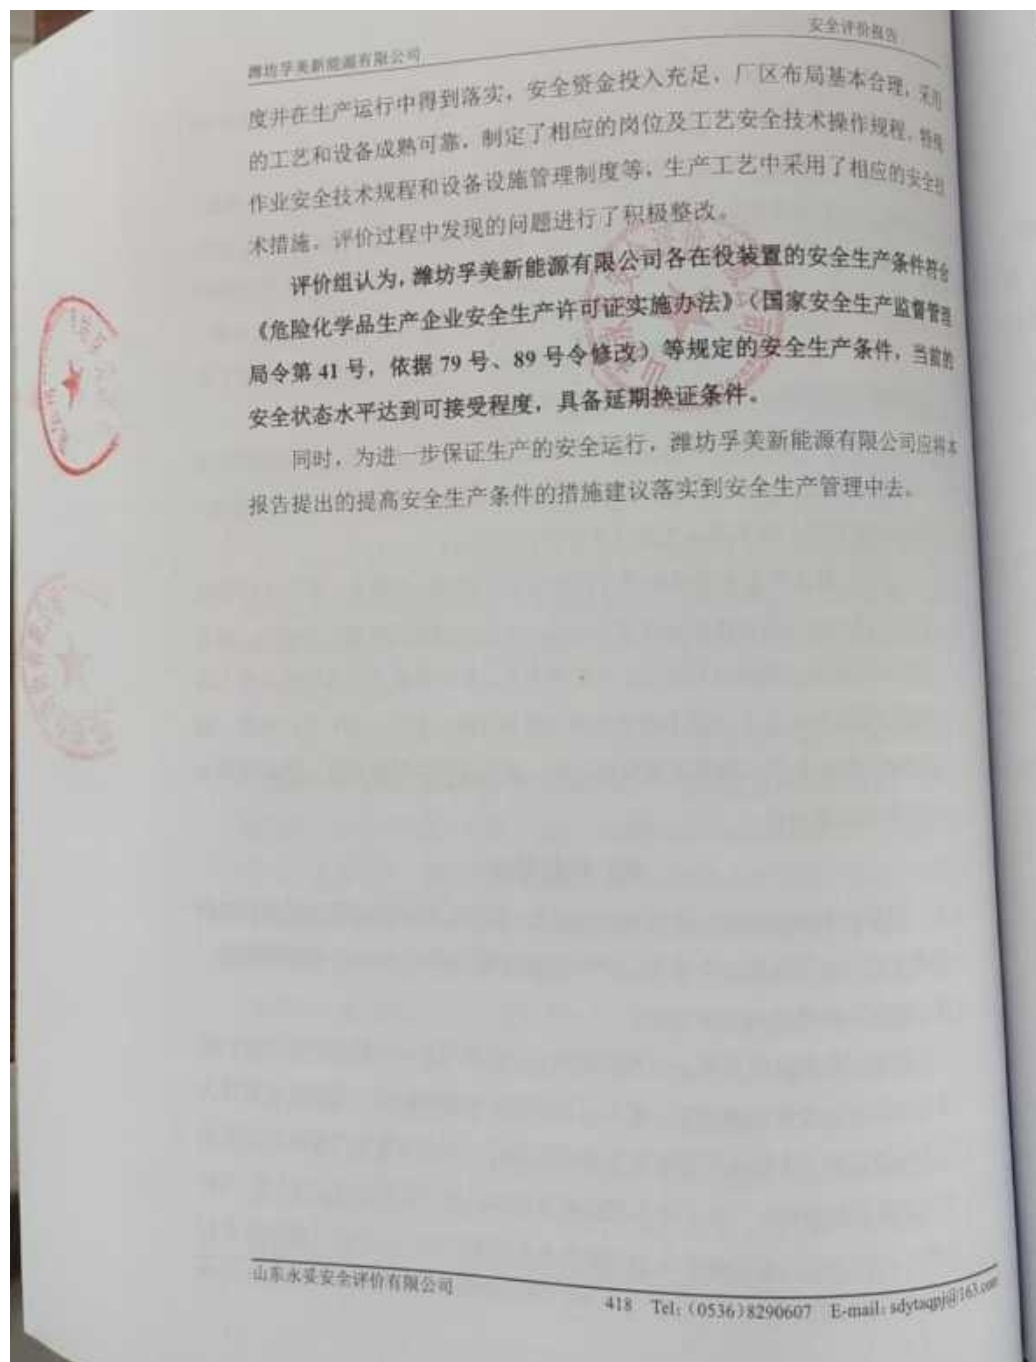 潍坊孚美新能源有限公司
安全评价报告
度并在生产运行中得到落实，安全资金投入充足，厂区布局基本合理，采用
的工艺和设备成熟可靠，制定了相应的岗位及工艺安全技术操作规程、特殊
作业安全技术规程和设备设施管理制度等，生产工艺中采用了相应的安全技
术措施。评价过程中发现的问题进行了积极整改。
评价组认为，潍坊孚美新能源有限公司各在役装置的安全生产条件符合
《危险化学品生产企业安全生产许可证实施办法》（国家安全生产监督管理
局令第 41 号，依据 79 号、89 号令修改）等规定的安全生产条件，当前的
安全状态水平达到可接受程度，具备延期换证条件。
同时，为进一步保证生产的安全运行，潍坊孚美新能源有限公司应将本
报告提出的提高安全生产条件的措施建议落实到安全生产管理中去。
山东永妥安全评价有限公司
418 Tel:（0536)8290607 E-mail: sdytaqpj@163.com